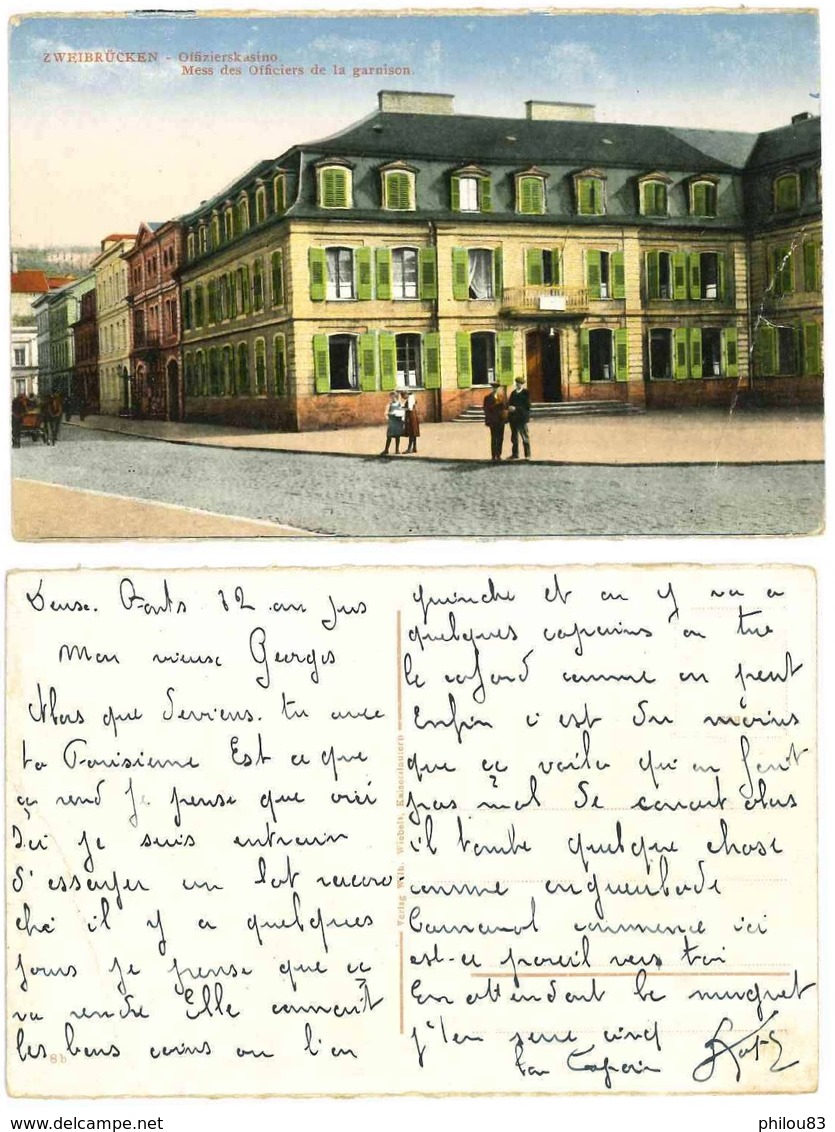 ZWEIBRÜCKEN - Offizierskasino.
Mess des Officiers de la garnison.
Deux. Ponts 12 an jus
Mon vieux Georges
Alors que deviens. tu avec
ta Parisienne Est ce que
ça rend Je pense que oui
Ici je suis entrain
d'essayer un lot racro
ché il y a quelques
jours je pense que ça
va rendre Elle connait
les bons coins ou l'on
guinche et on y va a
quelques copains on tue
le cafard comme on peut
Enfin c'est du moins
que ça voila qu'on fait
pas mal de conait alors
il tombe quelque chose
comme engueulade
Carnaval commence ici
est-ce pareil vers toi
En attendant le muguet
j't'en serre cinq
Ton Copain
Verlag Wilh. Wiebelt, Kaiserslautern
8b
philou83